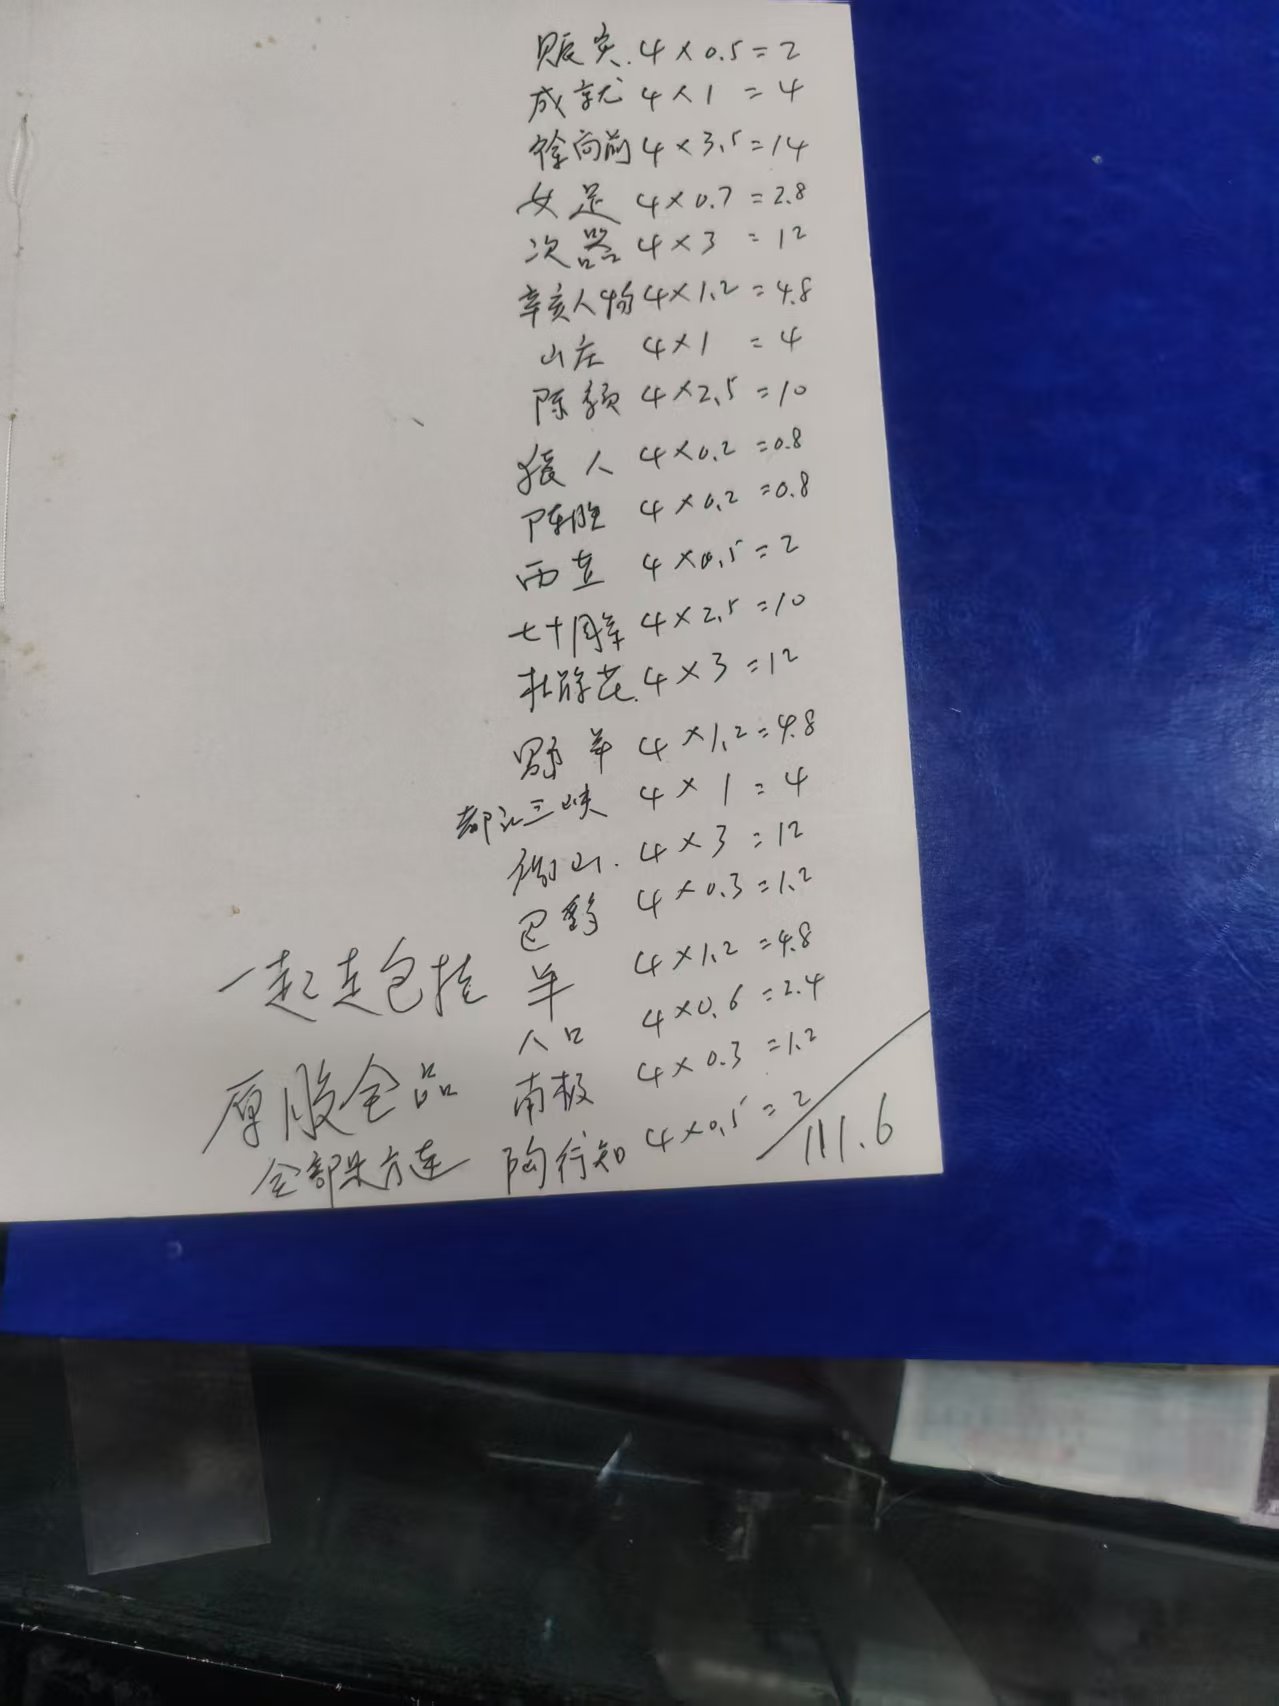 赈灾. 4×0.5=2
成就 4×1=4
徐向前 4×3.5=14
女足 4×0.7=2.8
次器 4×3=12
辛亥人物 4×1.2=4.8
山庄 4×1=4
陈毅 4×2.5=10
猿人 4×0.2=0.8
陈胜 4×0.2=0.8
西立 4×0.5=2
七十周年 4×2.5=10
杜鹃花. 4×3=12
野羊 4×1.2=4.8
三峡 4×1=4
衡山. 4×3=12
巴黎 4×0.3=1.2
羊 4×1.2=4.8
人口 4×0.6=2.4
南极 4×0.3=1.2
陶行知 4×0.5=2
111.6
一起走包挂
原胶全品
全部是方连